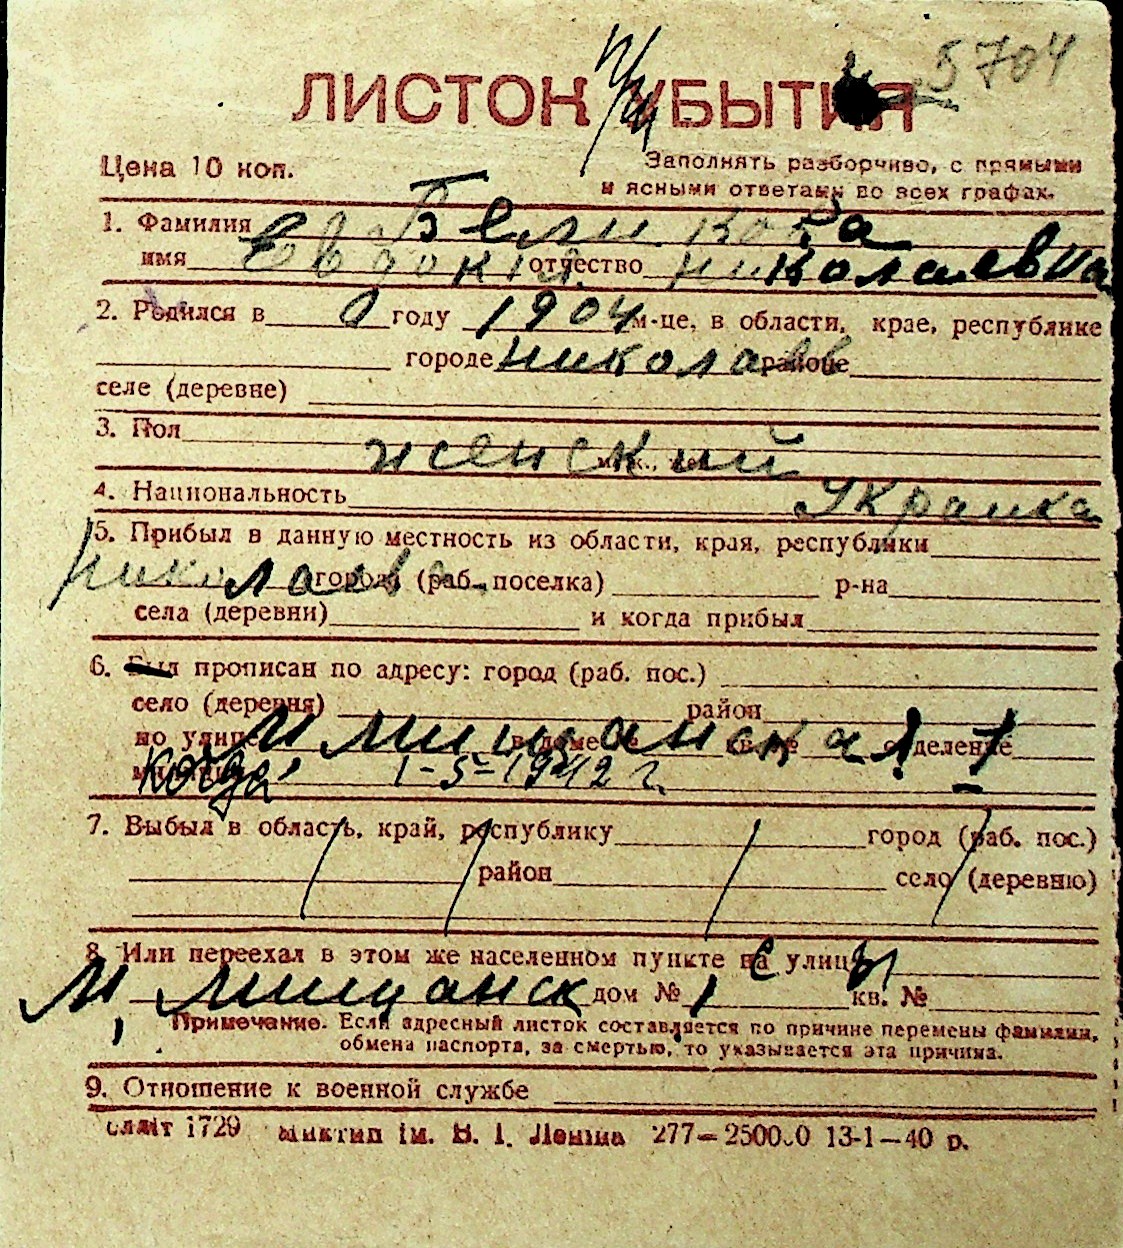 5704
ЛИСТОК УБЫТИЯ
Цена 10 коп.
Заполнять разборчиво, с прямыми
и ясными ответами во всех графах.
1. Фамилия Беликова
имя Евдокія отчество николаевна
2. Родился в 0 году 1904 м-це, в области, крае, республике
городе николаев районе
селе (деревне)
3. Пол женский
4. Национальность Украинка
5. Прибыл в данную местность из области, края, республики
николаева города (раб. поселка) р-на
села (деревни) и когда прибыл
6. Был прописан по адресу: город (раб. пос.)
село (деревня) район
по улице М, мищанская 1 в доме № кв. № отделение
Когда 1-5-1942 г.
7. Выбыл в область, край, республику город (раб. пос.)
район село (деревню)
8. Или переехал в этом же населенном пункте на улицу
М, мищанск дом № 1 кв. №
Примечание. Если адресный листок составляется по причине перемены фамилии,
обмена паспорта, за смертью, то указывается эта причина.
9. Отношение к военной службе
1729 ім. В. І. Леніна 277—250000 13-1—40 р.